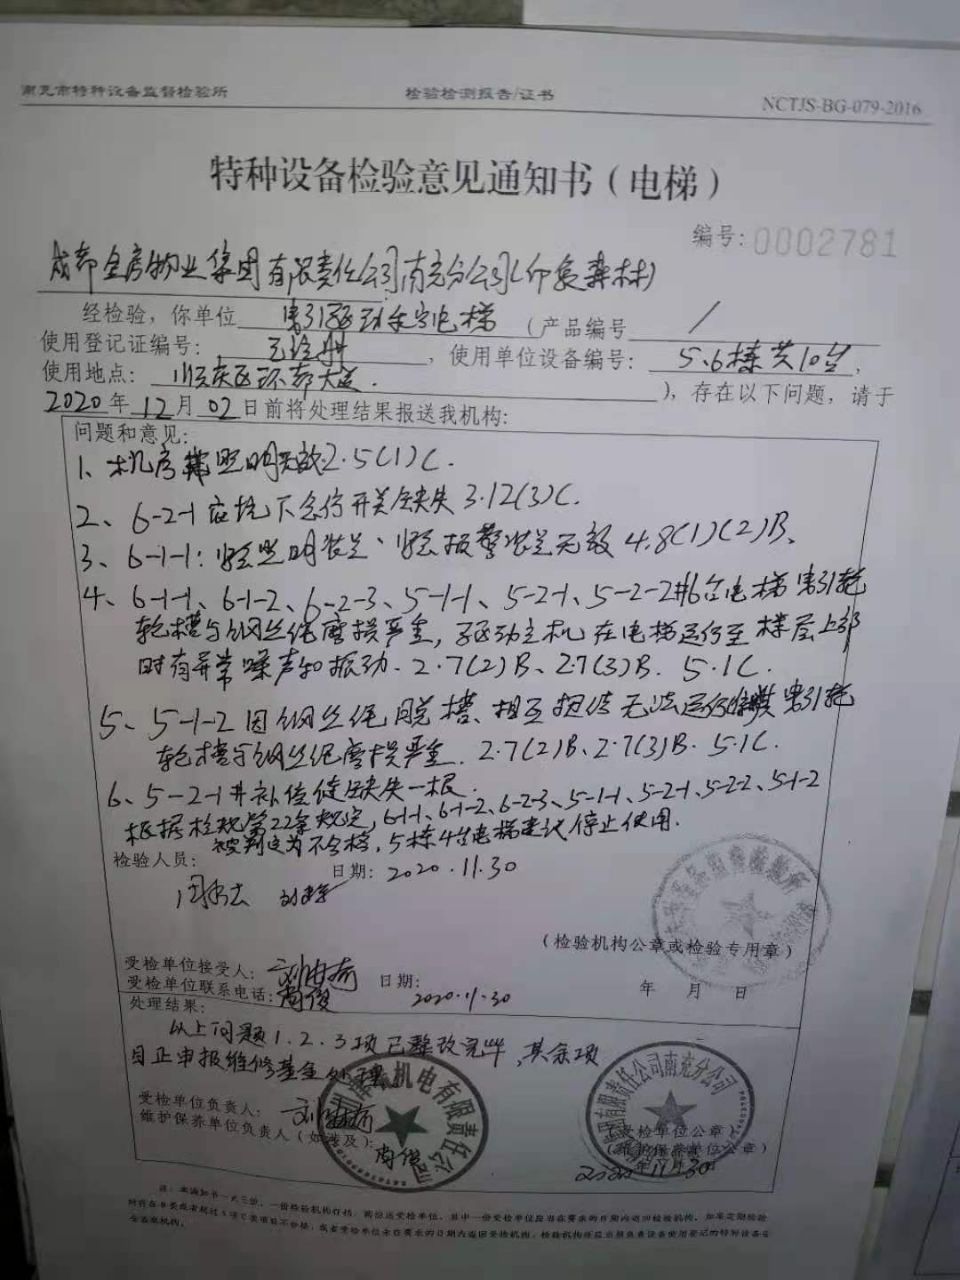 南充市特种设备监督检验所 检验检测报告/证书 NCTJS-BG-079-2016
特种设备检验意见通知书（电梯）
编号：0002781
成都全房物业集团有限责任公司南充分公司(印象森林)
经检验，你单位 曳引驱动乘客电梯 （产品编号 /
使用登记证编号： ，使用单位设备编号：5.6栋共10台，
使用地点：顺庆区环都大道. ），存在以下问题，请于
2020年12月02日前将处理结果报送我机构：
问题和意见：
1、机房 照明无效2.5(1)C.
2、6-2-1底坑下急停开关缺失 3.12(3)C.
3、6-1-1：紧急照明装置、紧急报警装置无效 4.8(1)(2)B、
4、6-1-1、6-1-2、6-2-3、5-1-1、5-2-1、5-2-2共6台电梯曳引轮
轮槽与钢丝绳磨损严重，驱动主机在电梯运行至楼层上部
时有异常噪声和振动. 2.7(2)B、2.7(3)B. 5.1C.
5、5-1-2因钢丝绳脱槽、相互扭结无法运行 曳引轮
轮槽与钢丝绳磨损严重. 2.7(2)B、2.7(3)B. 5.1C.
6、5-2-1#补偿链缺失一根.
根据检规第22条规定，6-1-1、6-1-2、6-2-3、5-1-1、5-2-1、5-2-2、5-1-2
被判定为不合格，5栋4台电梯建议停止使用.
检验人员： 日期：2020.11.30
（检验机构公章或检验专用章）
年 月 日
受检单位接受人： 日期：2020.11.30
受检单位联系电话：
处理结果：
以上问题1.2.3项已整改完毕，其余项
目正申报维修基金处理.
受检单位负责人：
维护保养单位负责人（如涉及）：
机电有限责任公司
有限责任公司南充分公司
（受检单位公章）
（维护保养单位公章）
2020年11月30日
注：本通知书一式三份，一份检验机构存档，两份送受检单位，其中一份受检单位应当在要求的日期内返回检验机构。